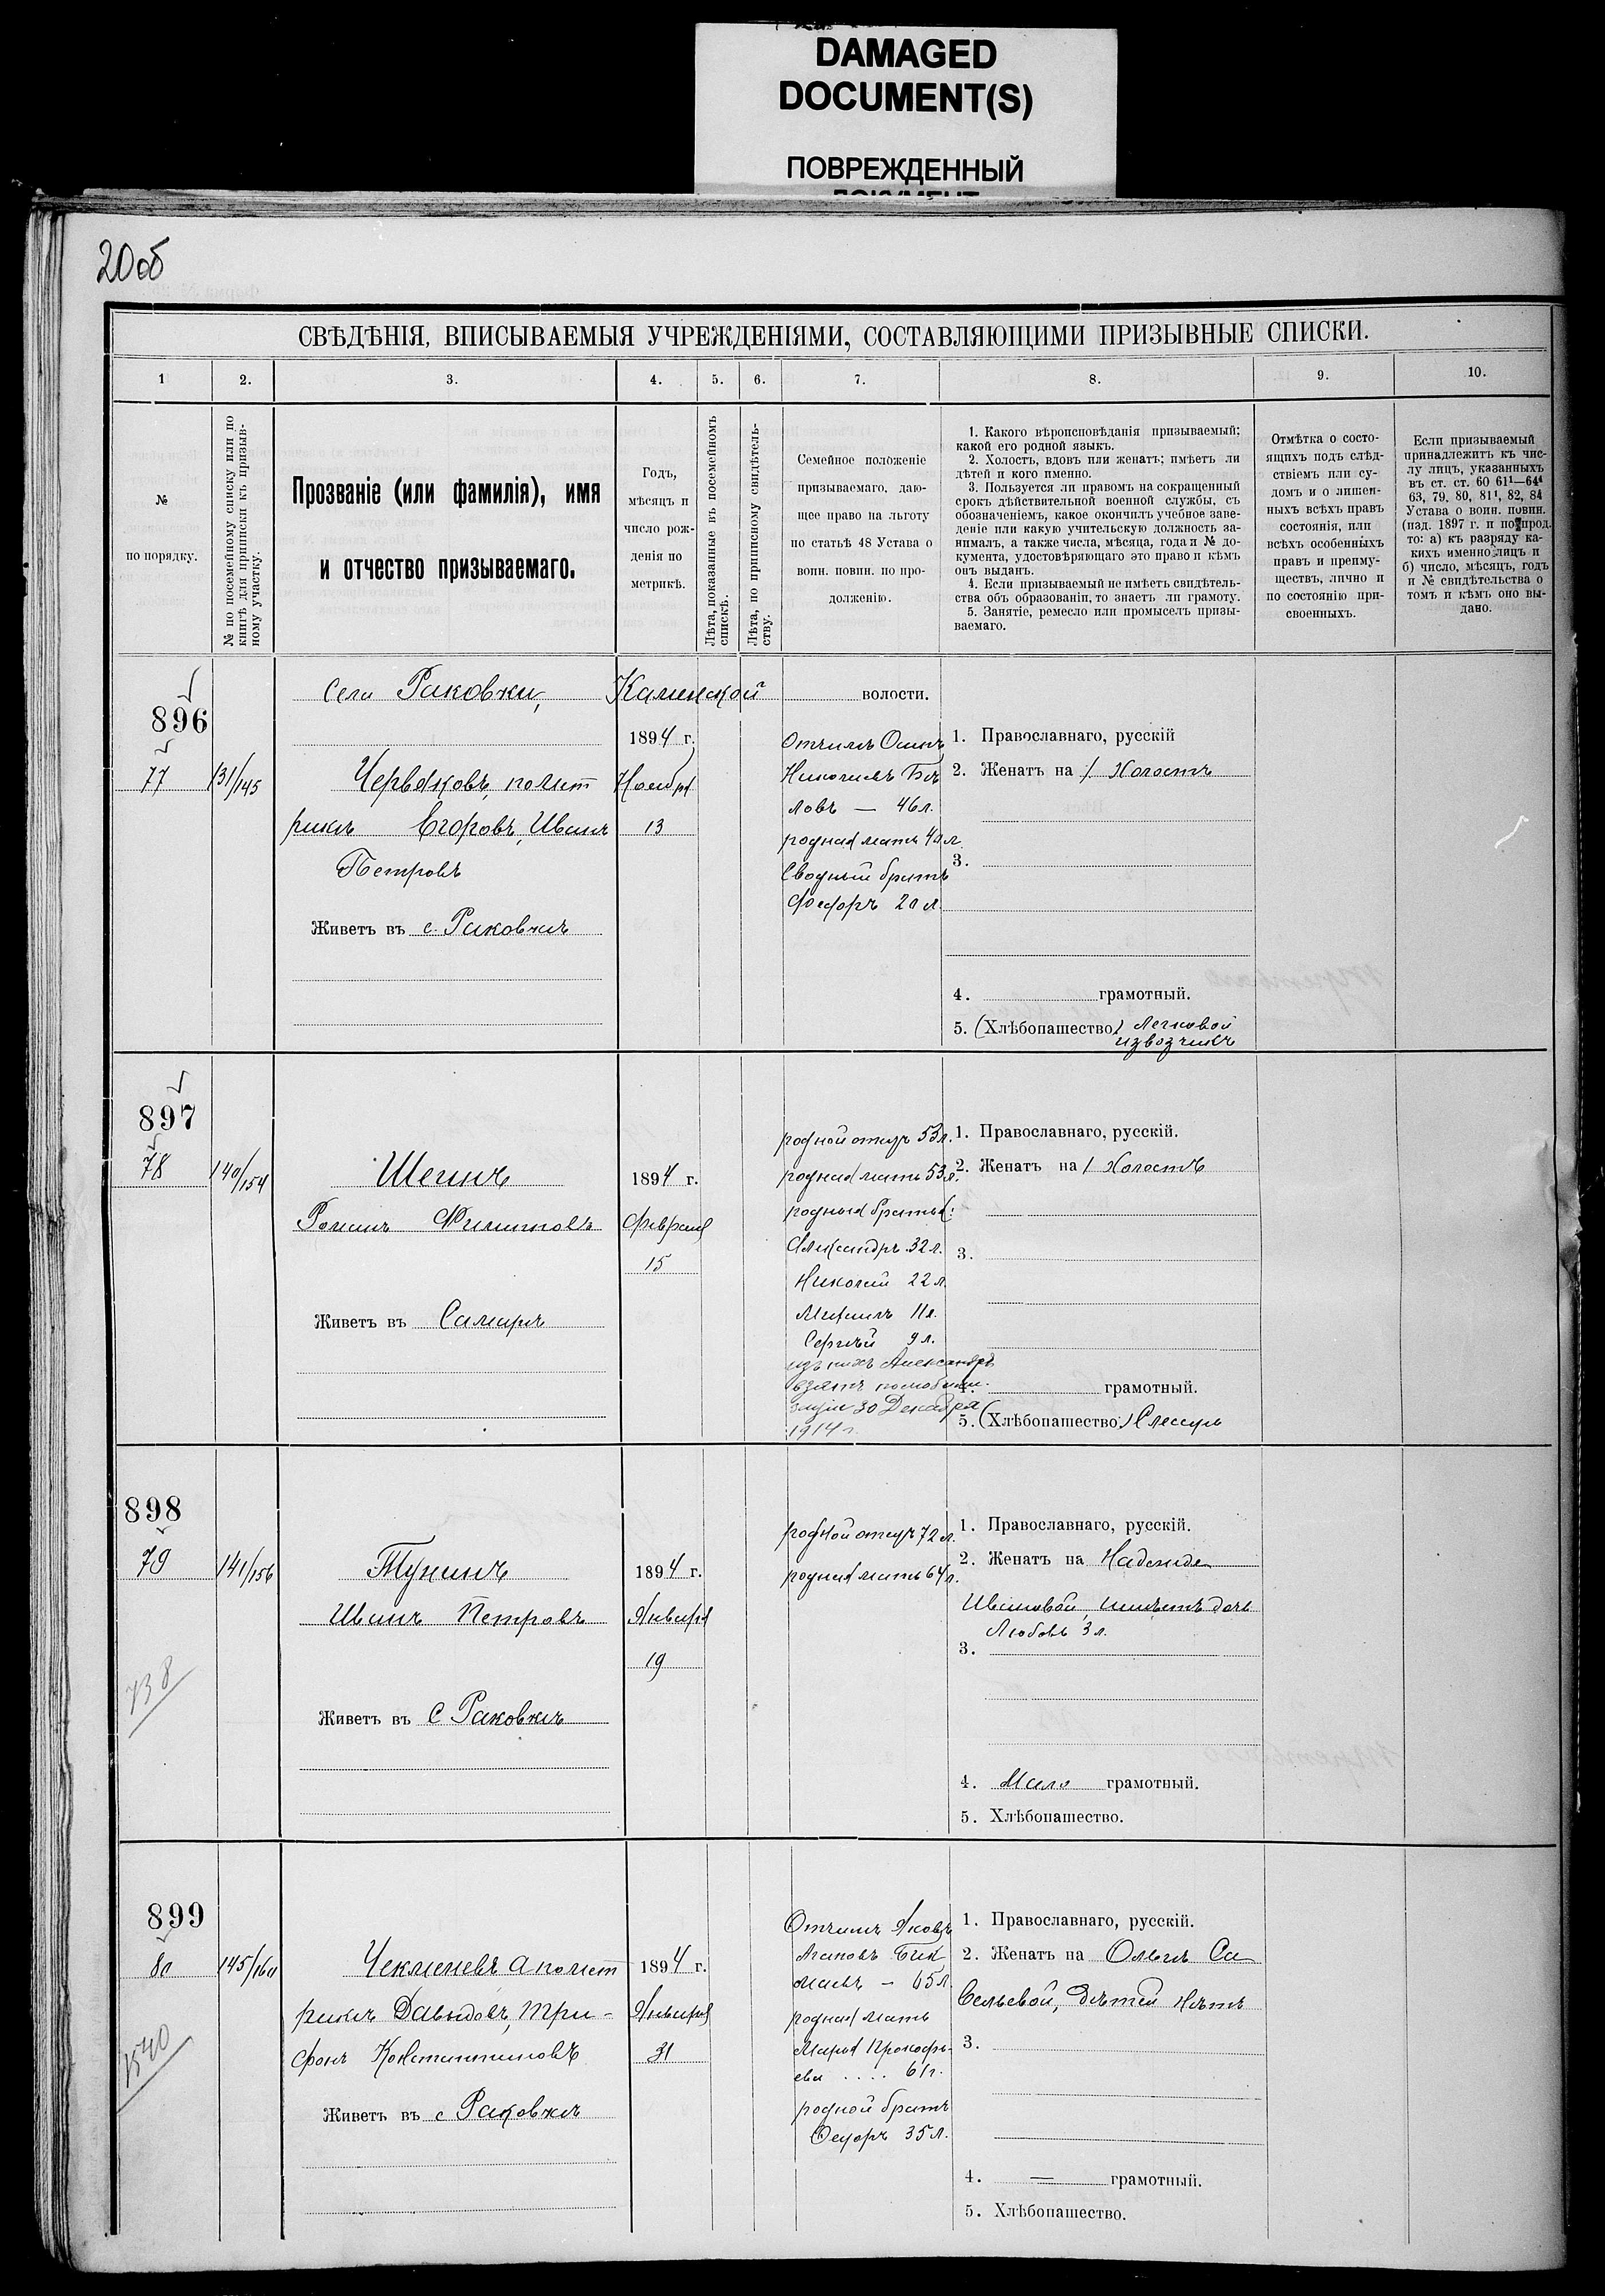 DAMAGED
DOCUMENT(S)
ПОВРЕЖДЕННЫЙ
20об
СВѢДѢНІЯ, ВПИСЫВАЕМЫЯ УЧРЕЖДЕНІЯМИ, СОСТАВЛЯЮЩИМИ ПРИЗЫВНЫЕ СПИСКИ.
1 2. 3. 4. 5. 6. 7. 8. 9. 10.
№
по порядку.
№ по посемейному списку или по
книгѣ для приписки къ призыв-
ному участку.
Прозваніе (или фамилія), имя
и отчество призываемаго.
Годъ,
мѣсяцъ и
число рож-
денія по
метрикѣ.
Лѣта, показанные въ посемейномъ
спискѣ.
Лѣта, по приписному свидѣтель-
ству.
Семейное положеніе
призываемаго, даю-
щее право на льготу
по статьѣ 48 Устава о
воин. повин. по про-
долженію.
1. Какого вѣроисповѣданія призываемый;
какой его родной языкъ.
2. Холостъ, вдовъ или женатъ; имѣетъ ли
дѣтей и кого именно.
3. Пользуется ли правомъ на сокращенный
срокъ дѣйствительной военной службы, съ
обозначеніемъ, какое окончилъ учебное заве-
деніе или какую учительскую должность за-
нималъ, а также числа, мѣсяца, года и № до-
кумента, удостовѣряющаго это право и кѣмъ
онъ выданъ.
4. Если призываемый не имѣетъ свидѣтель-
ства объ образованіи, то знаетъ ли грамоту.
5. Занятіе, ремесло или промыселъ призы-
ваемаго.
Отмѣтка о состо-
ящихъ подъ слѣд-
ствіемъ или су-
домъ и о лишен-
ныхъ всѣхъ правъ
состоянія, или
всѣхъ особенныхъ
правъ и преиму-
ществъ, лично и
по состоянію при-
своенныхъ.
Если призываемый
принадлежитъ къ чис-
лу лицъ, указанныхъ
въ ст. ст. 60 61¹—64⁴
63, 79, 80, 81¹, 82, 84
Устава о воин. повин.
(изд. 1897 г. и по прод.
то: а) къ разряду ка-
кихъ именно лицъ и
б) число, мѣсяцъ, годъ
и № свидѣтельства о
томъ и кѣмъ оно вы-
дано.
Села Раковки, Каменской волости.
896
77
131/145
Червяковъ, по мет
рикѣ Егоровъ, Иванъ
Петровъ
Живетъ въ с. Раковкѣ
1894 г.
Ноября
13
Отчимъ Осипъ
Николаевъ
ловъ — 46 л.
родная мать
Сводный братъ
Федоръ 20 л.
1. Православнаго, русскій
2. Женатъ на / Холостъ
3.
4. грамотный.
5. (Хлѣбопашество) Легковой
извозчикъ
897
78
140/154
Шегинъ
Романъ Филиповъ
Живетъ въ Самарѣ
1894 г.
Февраля
15
родной отецъ 53 л.
родная мать 53 л.
родныя братья:
Александръ 32 л.
Николай 22 л.
Михаилъ 11 л.
Сергѣй 9 л.
изъ нихъ Александръ
взятъ по мобили-
заціи 30 Декабря
1914 г.
1. Православнаго, русскій.
2. Женатъ на / Холостъ
3.
4. грамотный.
5. (Хлѣбопашество) Слесарь
898
79
141/156
738
Тунинъ
Иванъ Петровъ
Живетъ въ С Раковкѣ
1894 г.
Января
19
родной отецъ 72 л.
родная мать 64 л.
1. Православнаго, русскій.
2. Женатъ на Надежде
Ивановой, имѣетъ дочь
Любовь 3 л.
3.
4. Мало грамотный.
5. Хлѣбопашество.
899
80
145/160
1540
Чекменевъ а по мет
рикѣ Давыдовъ, Три-
фонъ Константиновъ
Живетъ въ с Раковкѣ
1894 г.
Января
31
Отчимъ Яковъ
Агаповъ Чек
меневъ — 65 л.
родная мать
Марья Прокофь-
ева .... 61 г.
родной братъ
Федоръ 35 л.
1. Православнаго, русскій.
2. Женатъ на Ольгѣ Са
вельевой, дѣтей нѣтъ
3.
4. — грамотный.
5. Хлѣбопашество.